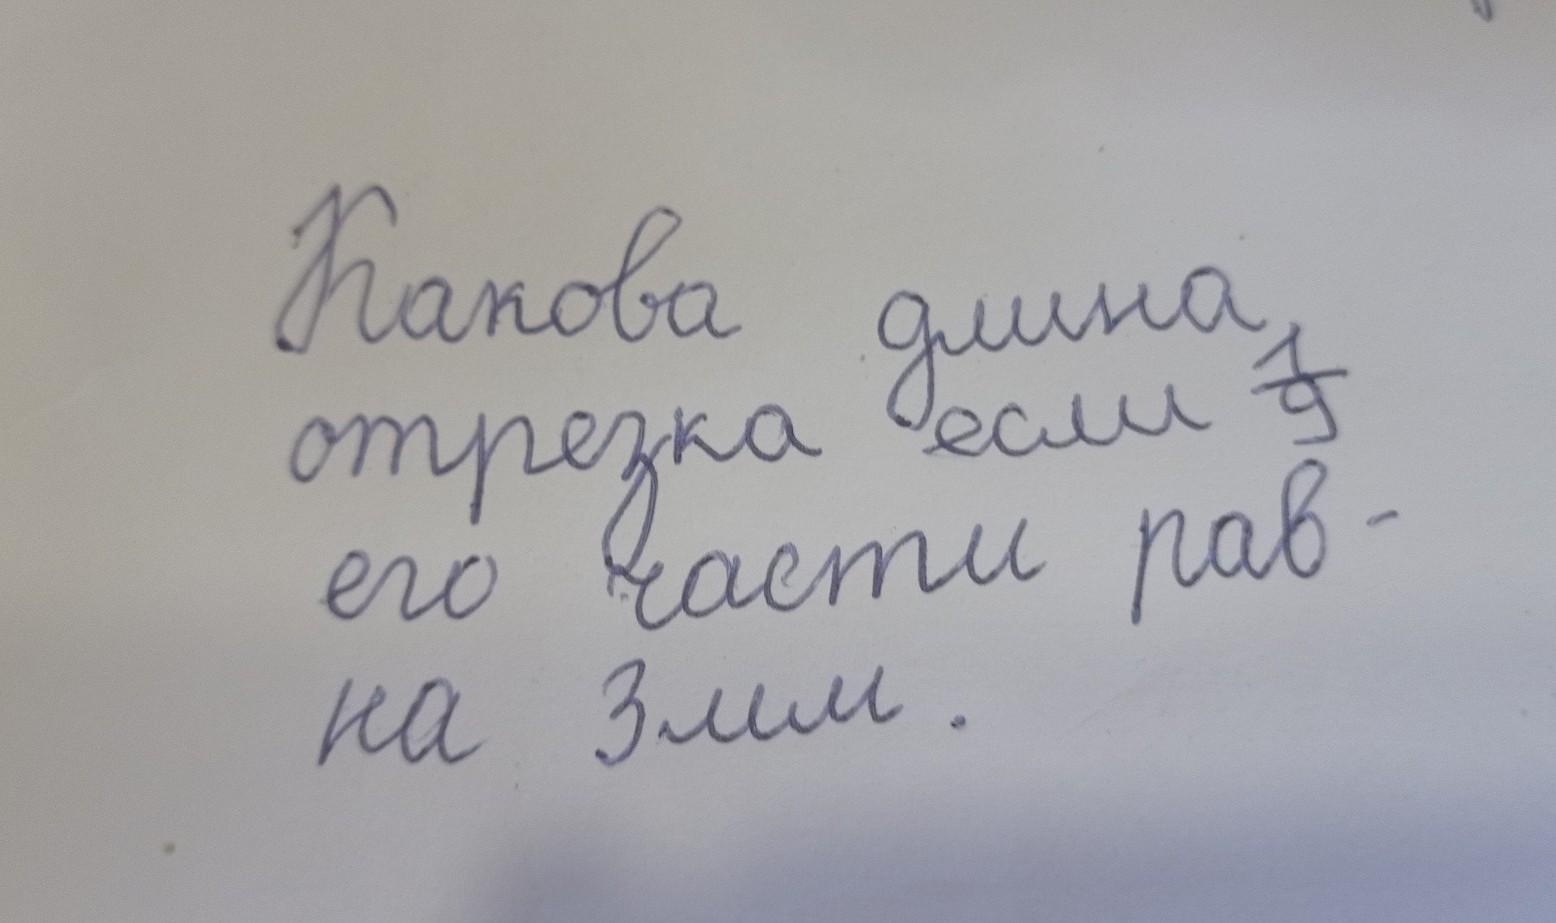 Какова длина
отрезка если 1/9
его части рав-
на 3мм.